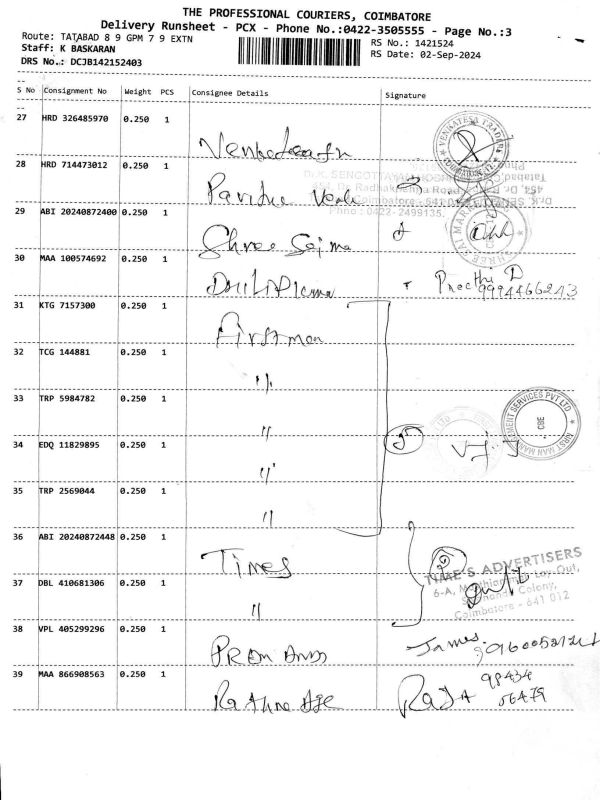 THE PROFESSIONAL COURIERS, COIMBATORE
Delivery Runsheet - PCX - Phone No.:0422-3505555 - Page No.:3
Route: TATABAD 8 9 GPM 7 9 EXTN
RS No.: 1421524
Staff: K BASKARAN
RS Date: 02-Sep-2024
DRS No.: DCJB142152403
S No Consignment No Weight PCS Consignee Details Signature
27 HRD 326485970 0.250 1
VENGATESA TRADERS
28 HRD 714473012 0.250 1
454, Dr. Radhakrishna Road
Coimbatore - 641
Phno : 0422- 2499135.
29 ABI 20240872400 0.250 1 Shree Sai
30 MAA 100574692 0.250 1 Preethi D
9994466243
31 KTG 7157300 0.250 1 First man
32 TCG 144881 0.250 1 "
33 TRP 5984782 0.250 1 "
FIRST MAN MANAGEMENT SERVICES PVT LTD
CBE
34 EDQ 11829895 0.250 1 "
35 TRP 2569044 0.250 1 "
36 ABI 20240872448 0.250 1 Times
TIME'S ADVERTISERS
6-A, Lay-Out,
Colony,
Coimbatore - 641 012
37 DBL 410681306 0.250 1 "
38 VPL 405299296 0.250 1 James
39 MAA 866908563 0.250 1 RAJA 98434
56479